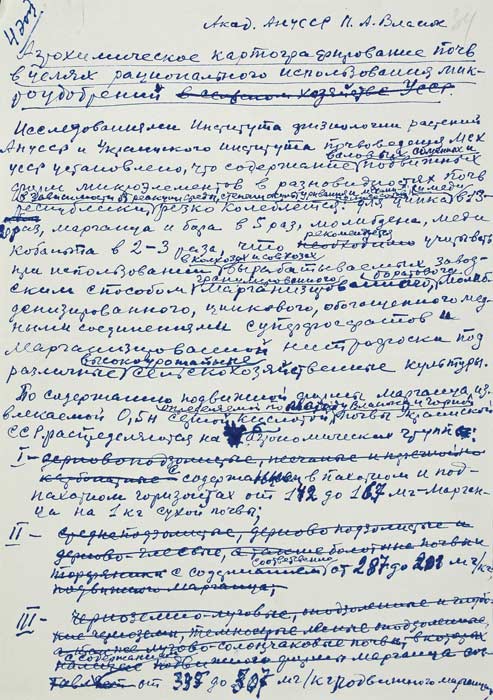 4 год
34
Акад. АНУССР П. А. Власюк
Агрохимическое картографирование почв
в целях рационального использования мик-
роудобрений в сельском хозяйстве УССР.
Исследованиями Института физиологии растений
АНУССР и Украинского института почвоведения МСХ
УССР установлено, что содержание валовых, обменных и подвижных
форм микроэлементов в разновидностях почв
(в зависимости от реакции среды, степени
республики) резко колеблется: цинка в 13-
20 раз, марганца и бора в 5 раз, молибдена, меди
кобальта в 2-3 раза, что необходимо учитывать
при использовании в колхозах и совхозах вырабатываемых завод-
ским способом гранулированного марганизированного, боратового, молиб-
денизированного, цинкового, обогащенного мед-
ными соединениями суперфосфатов и
марганизированной нитрофоски под
различные высокоурожайные сельскохозяйственные культуры.
По содержанию подвижной формы марганца из-
влекаемой 0,5н серной кислотой, определяемой по методу Власюка и почвы Украинской
ССР распределяются на агрономических групп:
I - дерновоподзолистые, песчаные и
с содержанием в пахотном и под-
пахотном горизонтах от 112 до 167 мг марган-
ца на 1 кг сухой почвы;
II - среднеподзолистые, дерново подзолистые и
дерново-глеевые, а также болотные почвы и
торфяники с содержанием соответственно от 287 до 288 мг/кг
подвижного марганца;
III - Черноземно-луговые, оподзоленные и
черноземы, темносерые лесные оподзоленные,
а также лугово-солончаковые почвы, в которых
с содержанием подвижного форм марганца сос-
тавляет от 395 до 507 мг/кг подвижного марганца